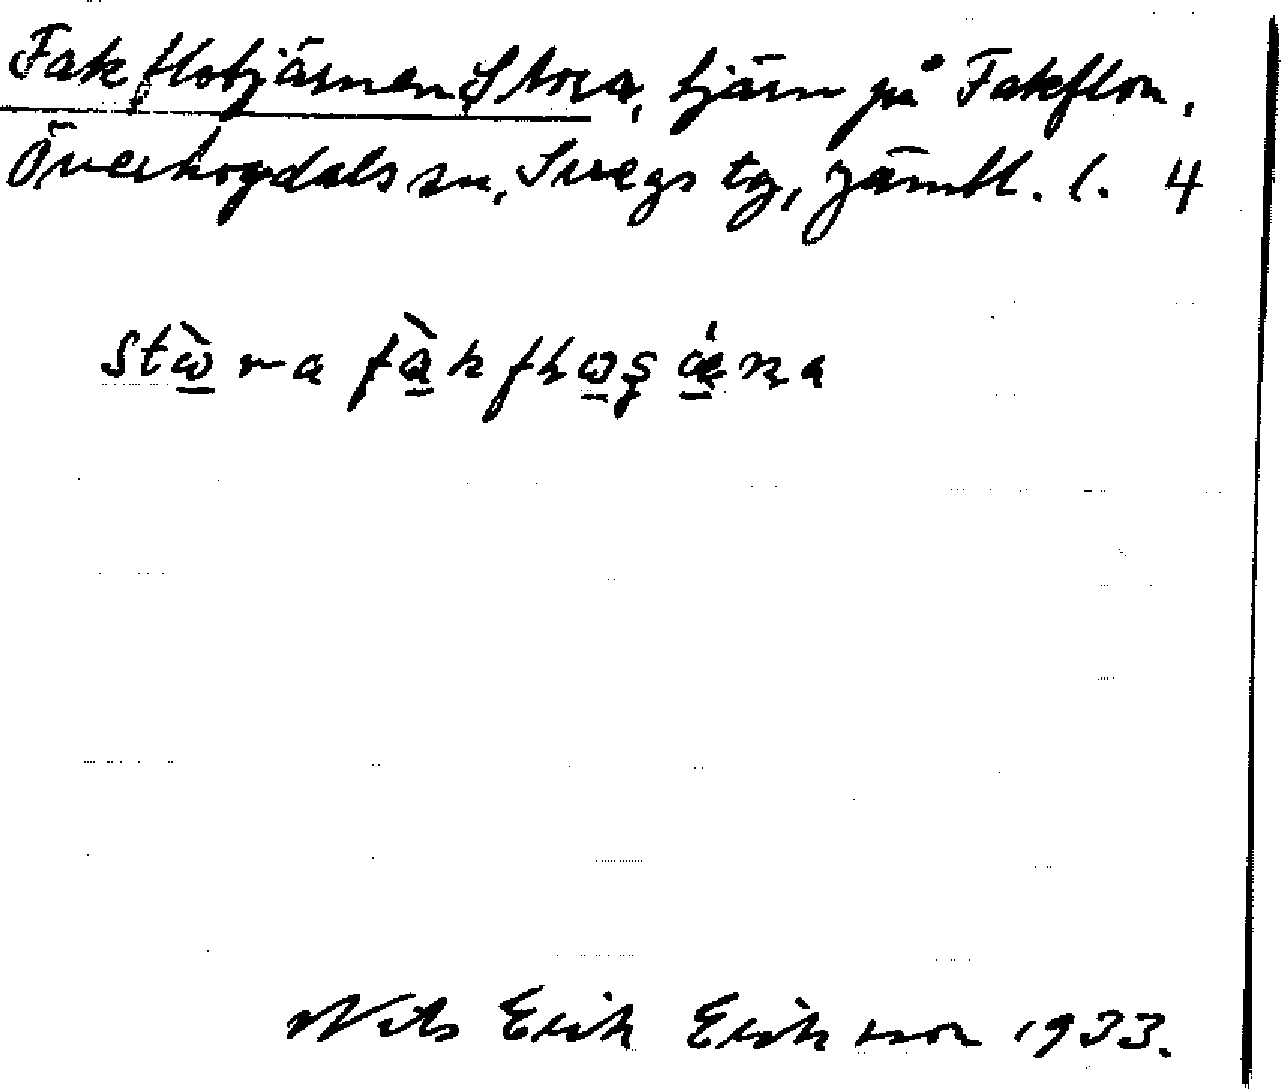 Fakflotjärnen, Stora, tjärn på Fakflon,
Överhogdals sn, Svegs tg, Jämtl. l. 4
Nils Erik Eriksson 1933.